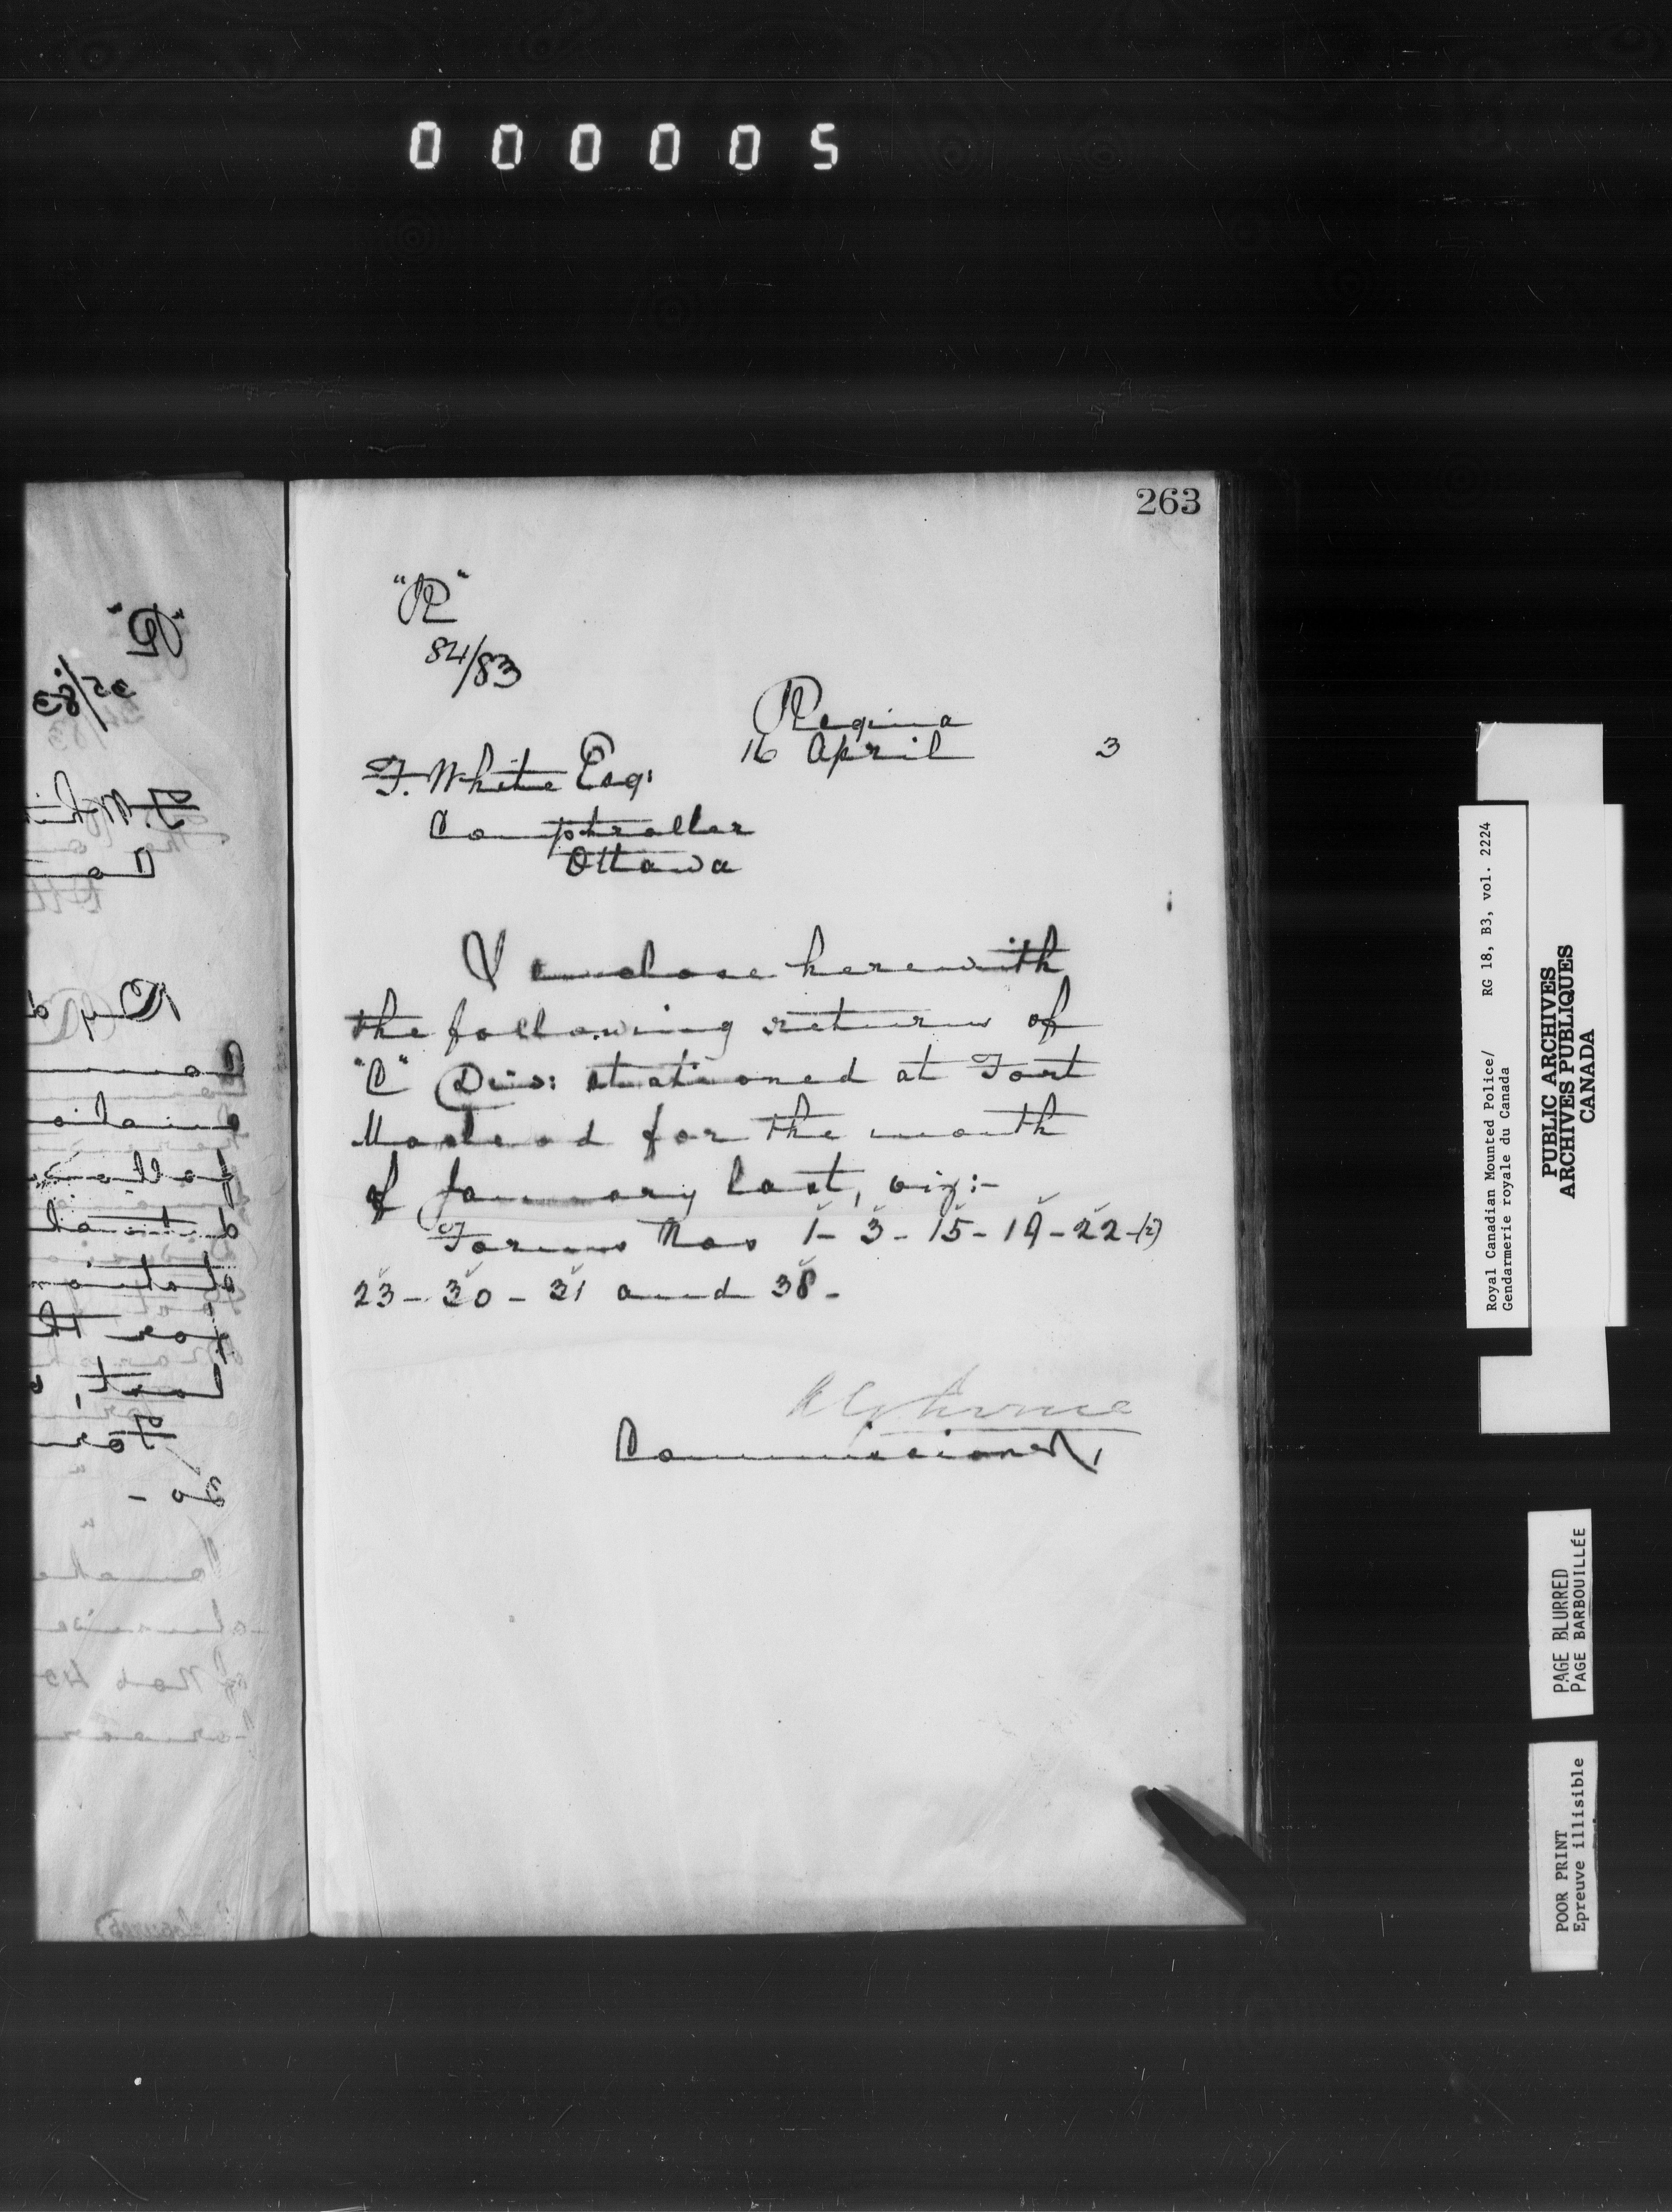 000005
263
"R"
84/83
Regina
16 April 3
F. White Esq:
Comptroller
Ottawa
I enclose herewith
the following return of
"C" Div: stationed at Fort
Macleod for the month
of January last, viz:-
Forms Nos 1 - 3 - 15 - 19 - 22 - (2)
23 - 30 - 31 and 38 -
Commissioner,
Royal Canadian Mounted Police/ RG 18, B3, vol. 2224
Gendarmerie royale du Canada
PUBLIC ARCHIVES
ARCHIVES PUBLIQUES
CANADA
PAGE BLURRED
PAGE BARBOUILLÉE
POOR PRINT
Epreuve illisible